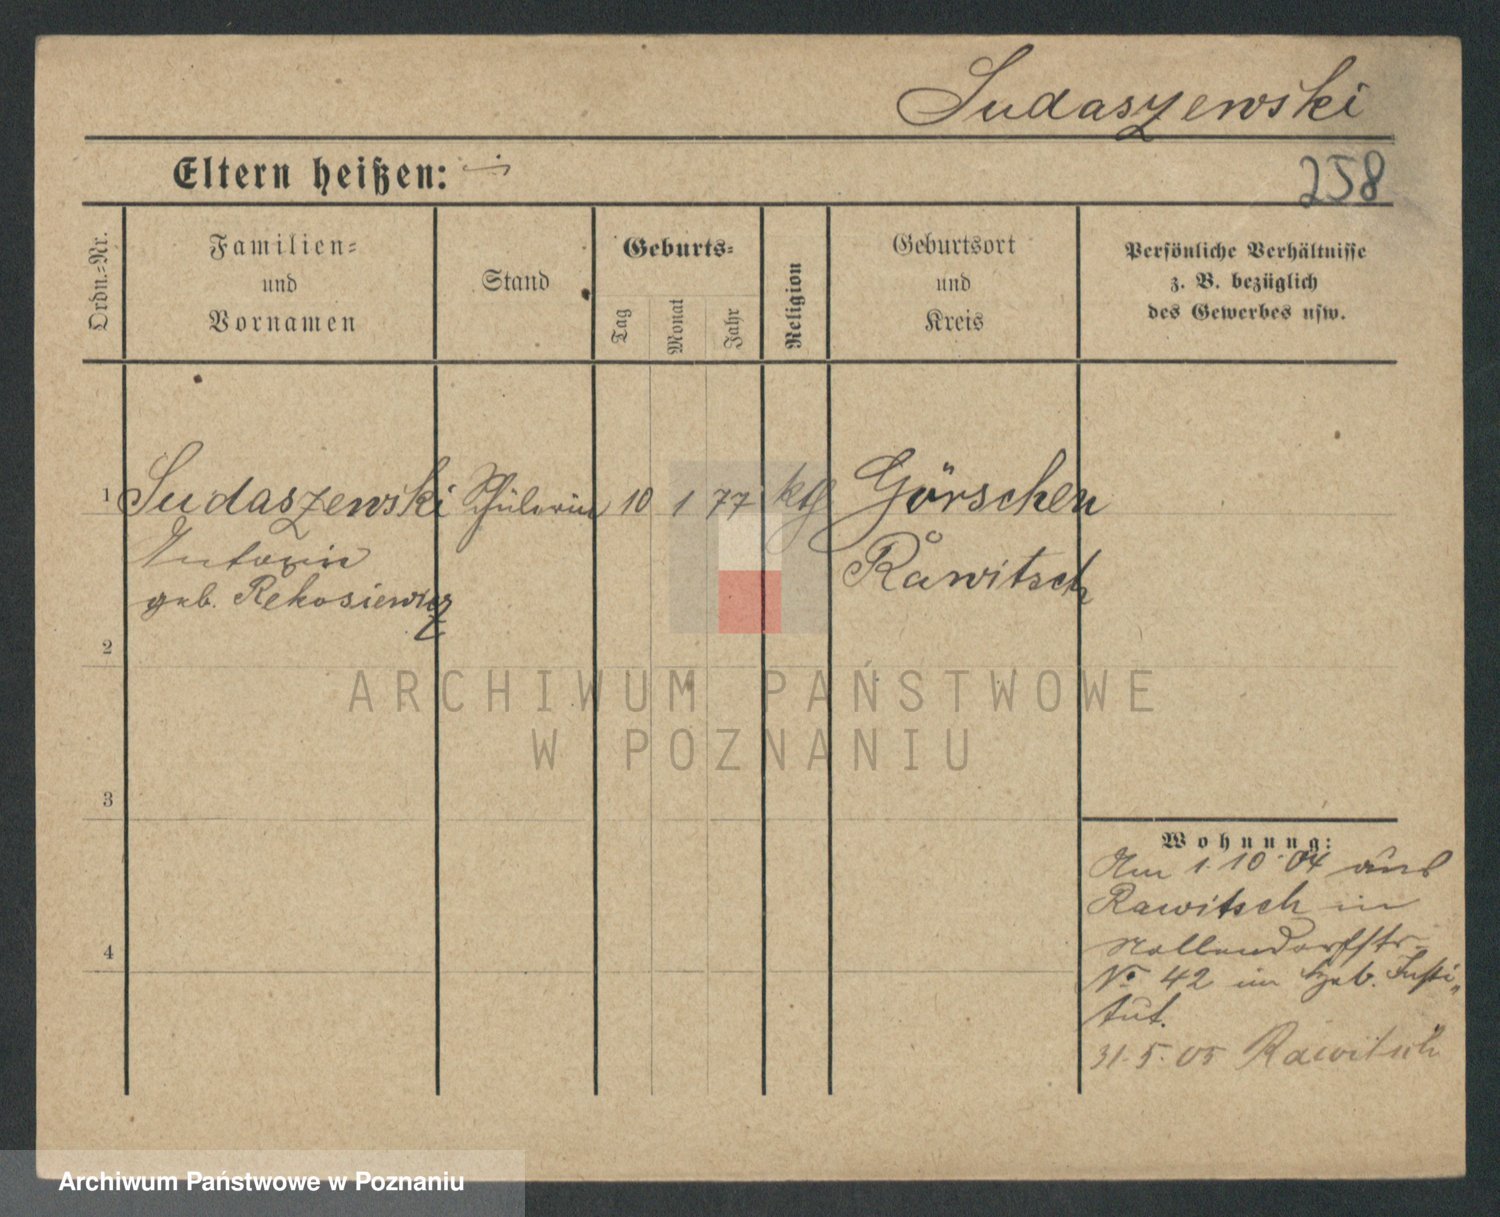 Sudaszewski
Eltern heißen: —
258
Ordn.-Nr.
Familien-
und
Vornamen
Stand
Geburts-
Tag
Monat
Jahr
Religion
Geburtsort
und
Kreis
Persönliche Verhältnisse
z. B. bezüglich
des Gewerbes usw.
1 Sudaszewski Schülerin 10 1 77 kth Görschen
Antonie Rawitsch
geb. Rekosiewicz
2
3
4
ARCHIWUM PAŃSTWOWE
W POZNANIU
Wohnung:
Am 1.10.04 aus
Rawitsch in
Nollendorffstr.
No 42 im Heb. Insti-
tut.
31.5.05 Rawitsch
Archiwum Państwowe w Poznaniu